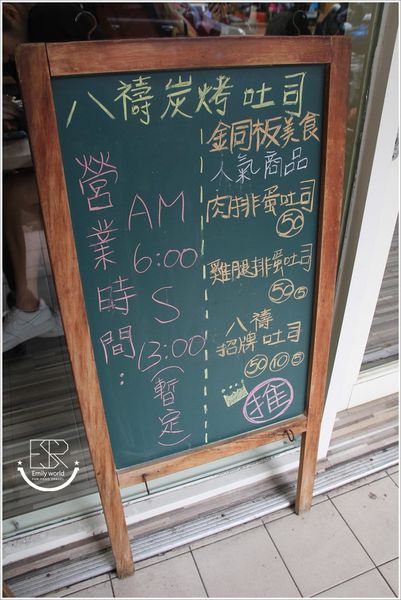 八禱炭烤吐司
營業時間:
AM
6:00
S
13:00
(暫定)
金同板美食
人氣商品
肉排蛋吐司
50
雞腿排蛋吐司
50 5
八禱
招牌吐司
50 10 5
推
ESR
Emily world
FUN FOOD TRAVEL